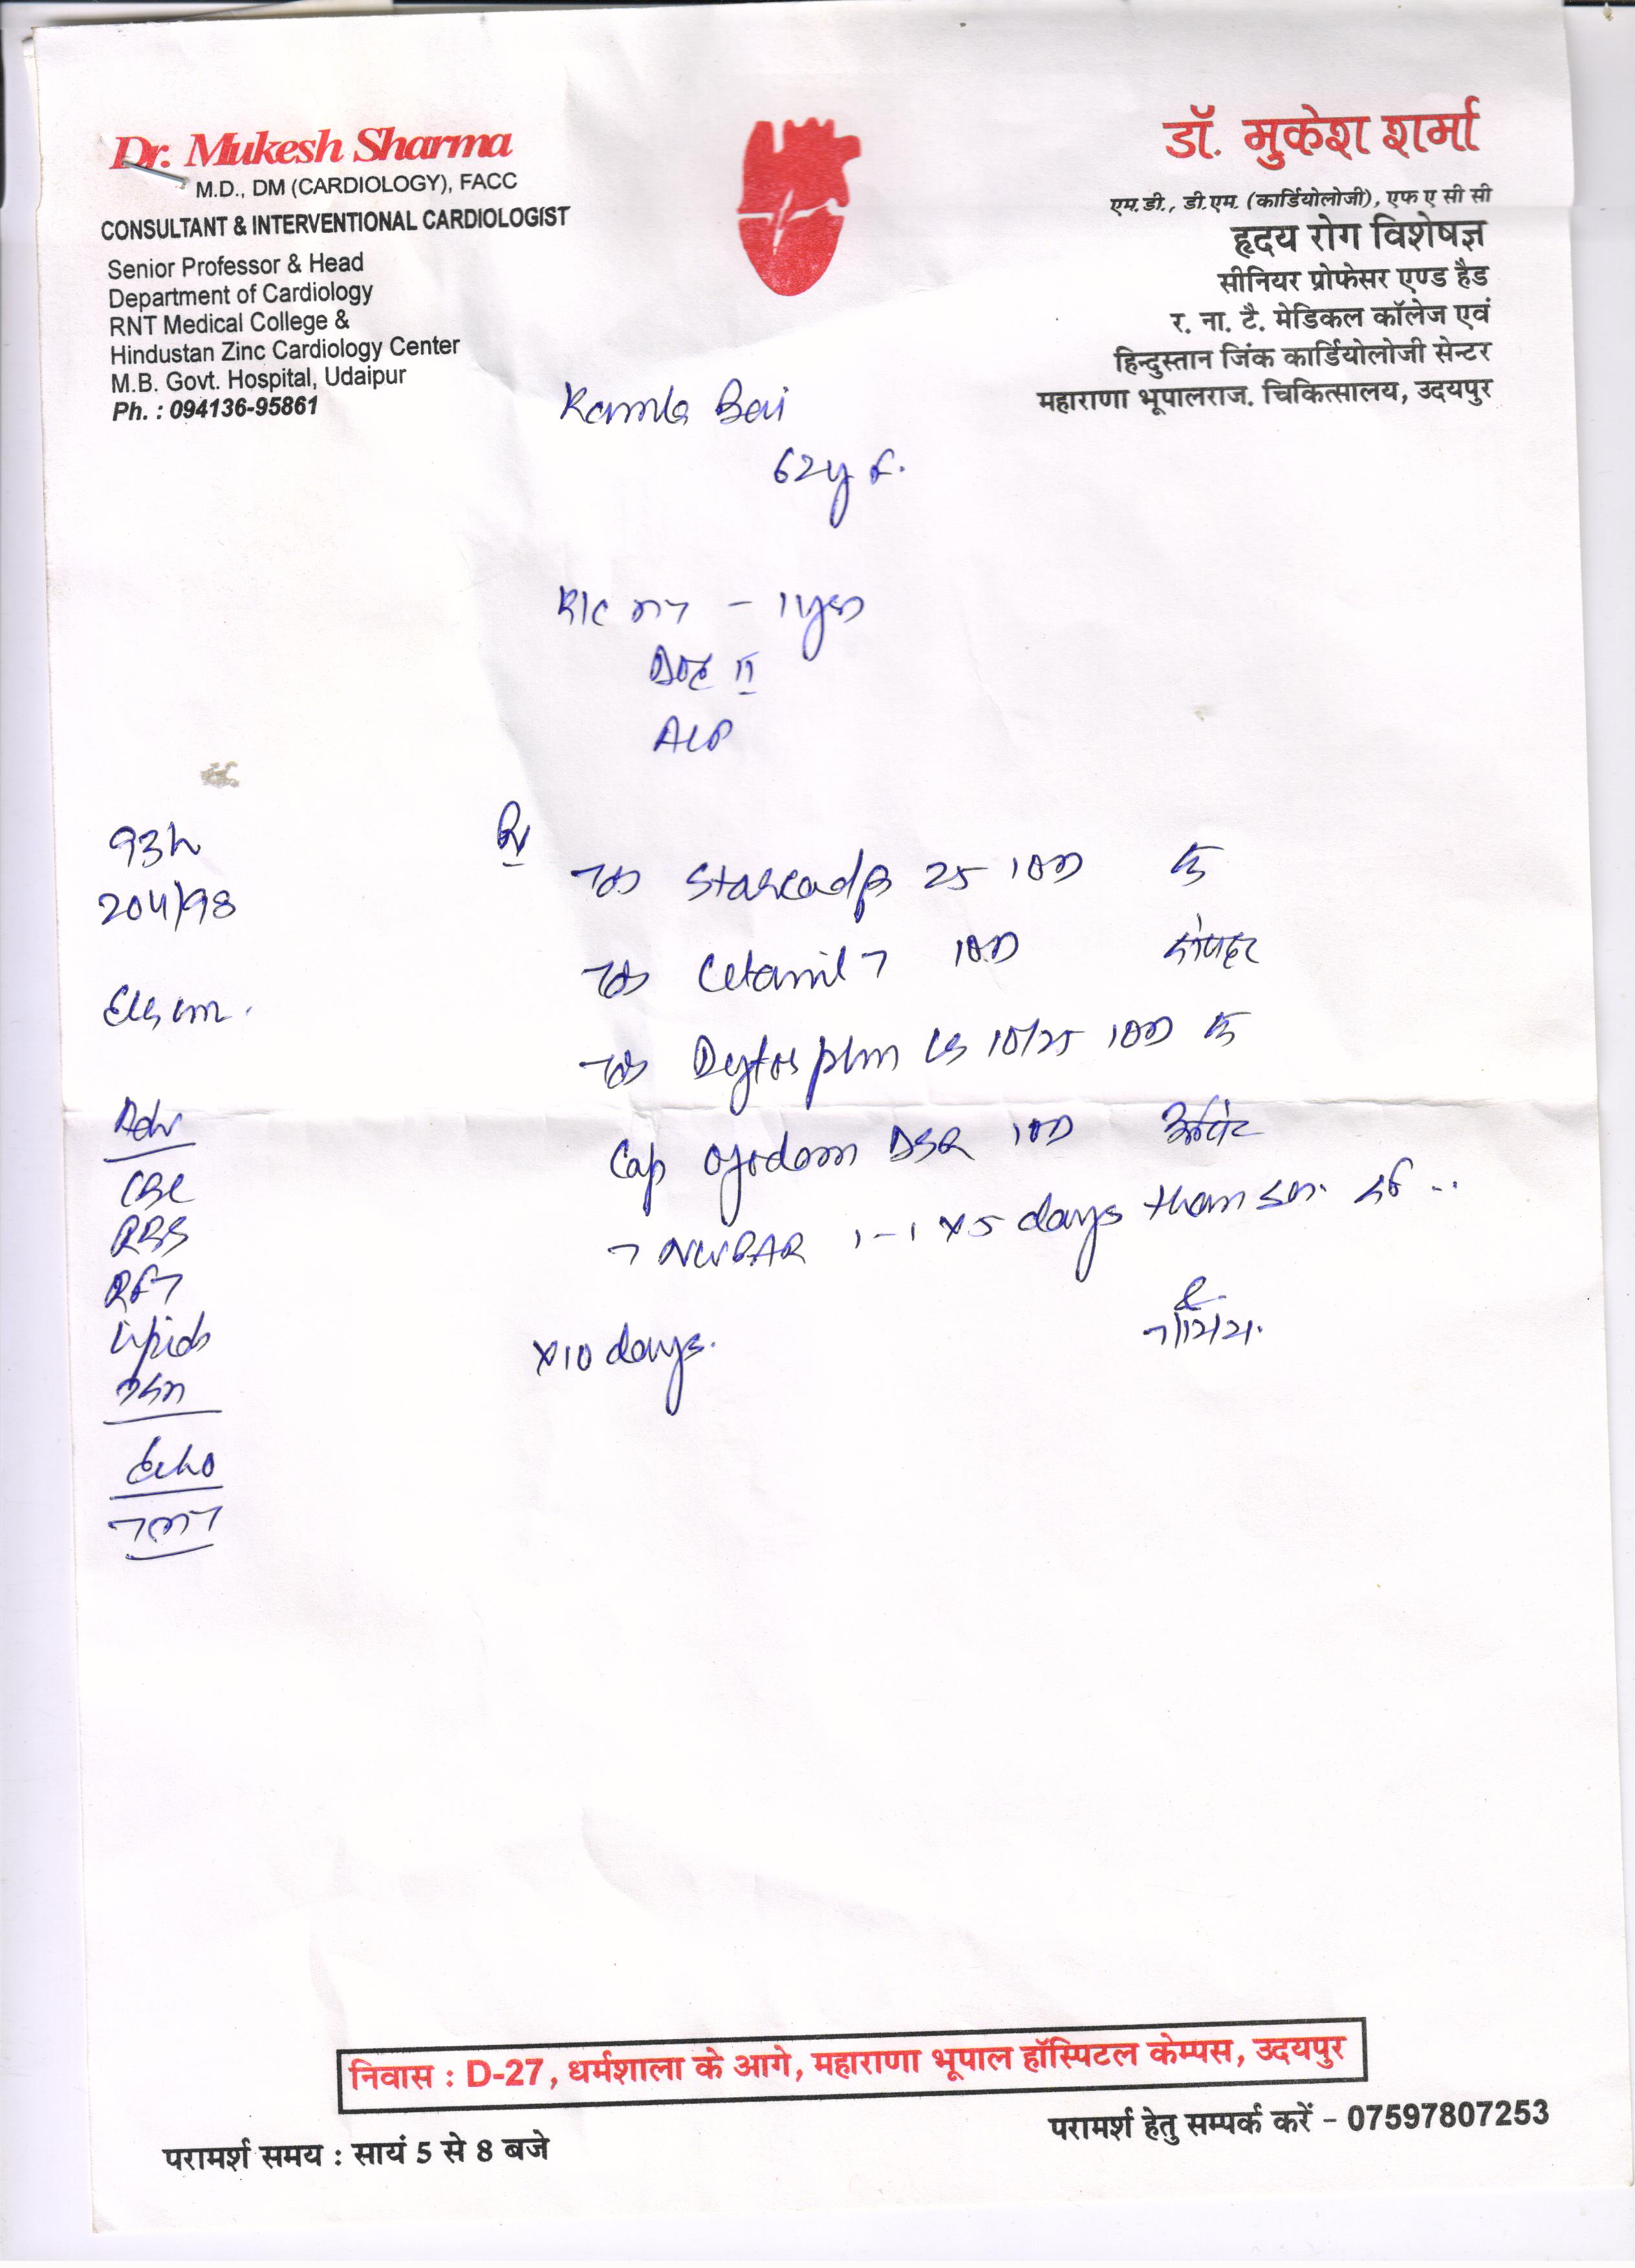 Dr. Mukesh Sharma
M.D., DM (CARDIOLOGY), FACC
CONSULTANT & INTERVENTIONAL CARDIOLOGIST
Senior Professor & Head
Department of Cardiology
RNT Medical College &
Hindustan Zinc Cardiology Center
M.B. Govt. Hospital, Udaipur
Ph. : 094136-95861
डॉ. मुकेश शर्मा
एम.डी., डी.एम. (कार्डियोलोजी), एफ ए सी सी
हृदय रोग विशेषज्ञ
सीनियर प्रोफेसर एण्ड हैड
र. ना. टै. मेडिकल कॉलेज एवं
हिन्दुस्तान जिंक कार्डियोलोजी सेन्टर
महाराणा भूपालराज. चिकित्सालय, उदयपुर
Kamla Bai
62y F.
DOE II
93/
204/98
Adv
CBC
RBS
RFT
Lipids
TSH
Echo
TMT
Rx
25 1OD
1OD दोपहर
Dytor plus LS 10/25 1OD
Cap DSR 1OD
1-1 x 5 days than
x 10 days.
7/12/21.
निवास : D-27, धर्मशाला के आगे, महाराणा भूपाल हॉस्पिटल केम्पस, उदयपुर
परामर्श समय : सायं 5 से 8 बजे
परामर्श हेतु सम्पर्क करें - 07597807253